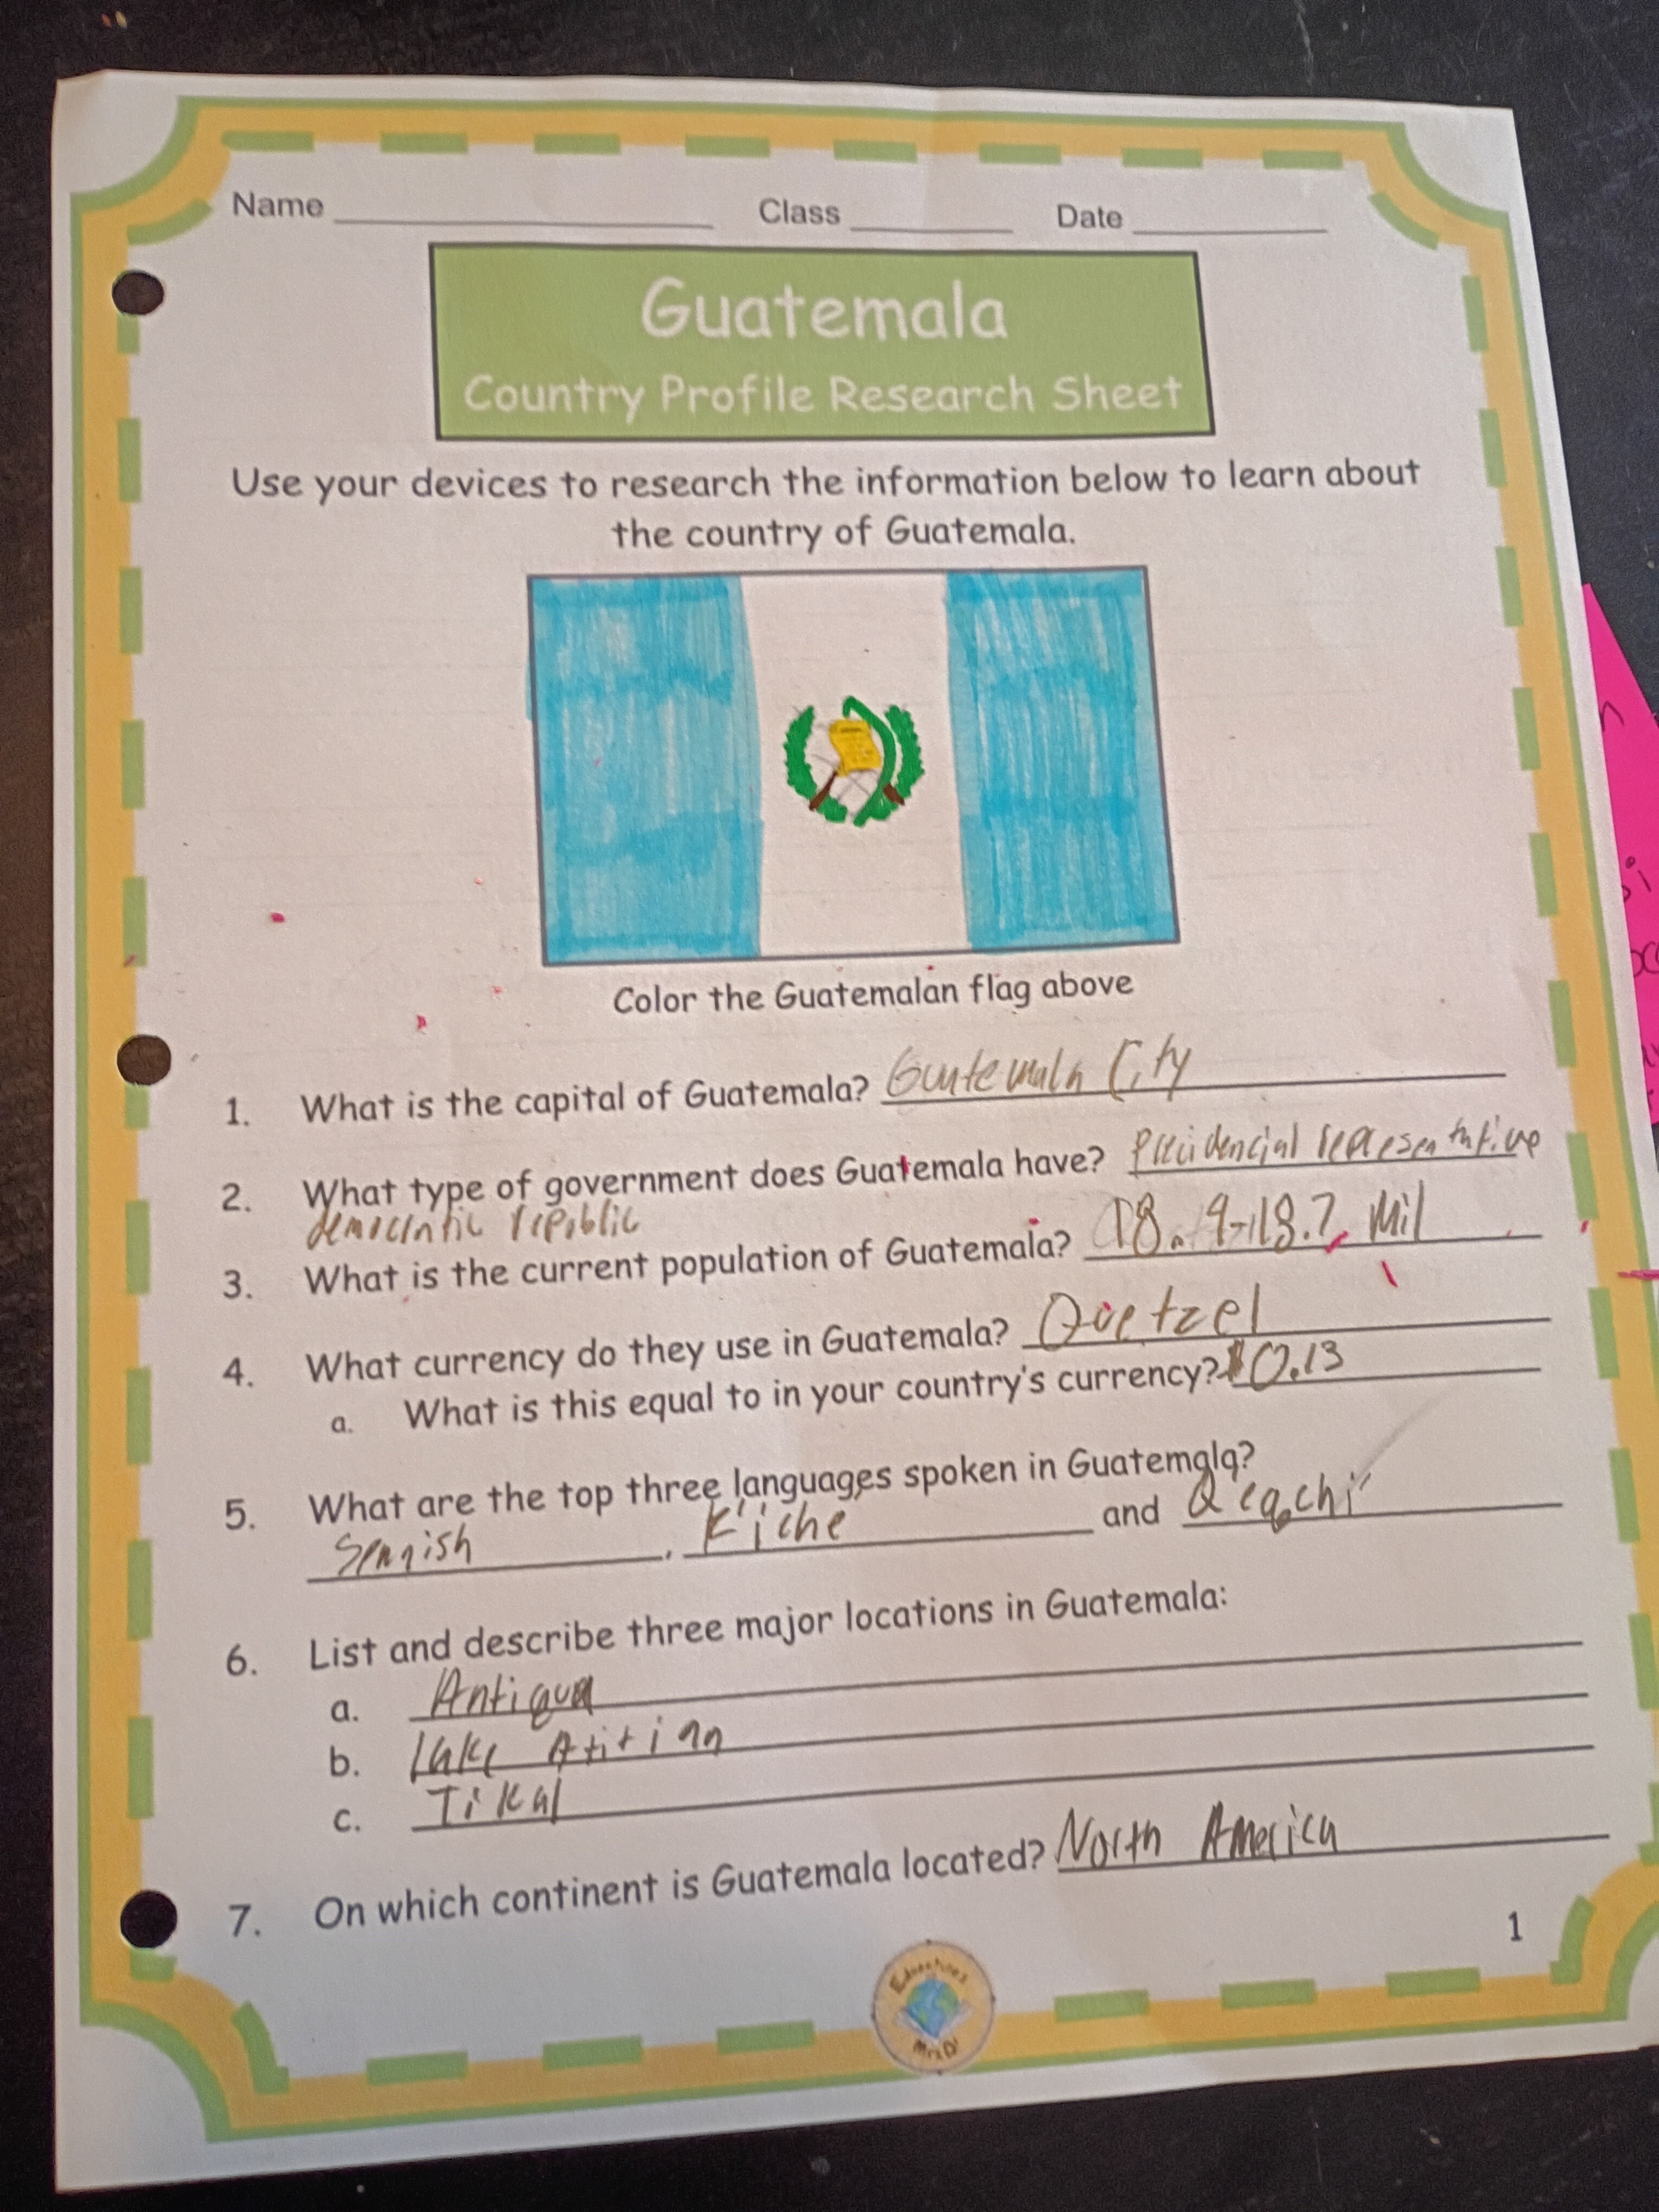 Name ____________ Class ______ Date ______
Guatemala
Country Profile Research Sheet
Use your devices to research the information below to learn about
the country of Guatemala.
Color the Guatemalan flag above
1. What is the capital of Guatemala? Guatemala City
2. What type of government does Guatemala have? representative
democratic republic
3. What is the current population of Guatemala? 18.4-18.7 Mil
4. What currency do they use in Guatemala? Quetzel
a. What is this equal to in your country's currency? $0.13
5. What are the top three languages spoken in Guatemala?
Spanish, K'iche and
6. List and describe three major locations in Guatemala:
a. Antigua
b. Lake
c. Tikal
7. On which continent is Guatemala located? North America
1
Mrs D